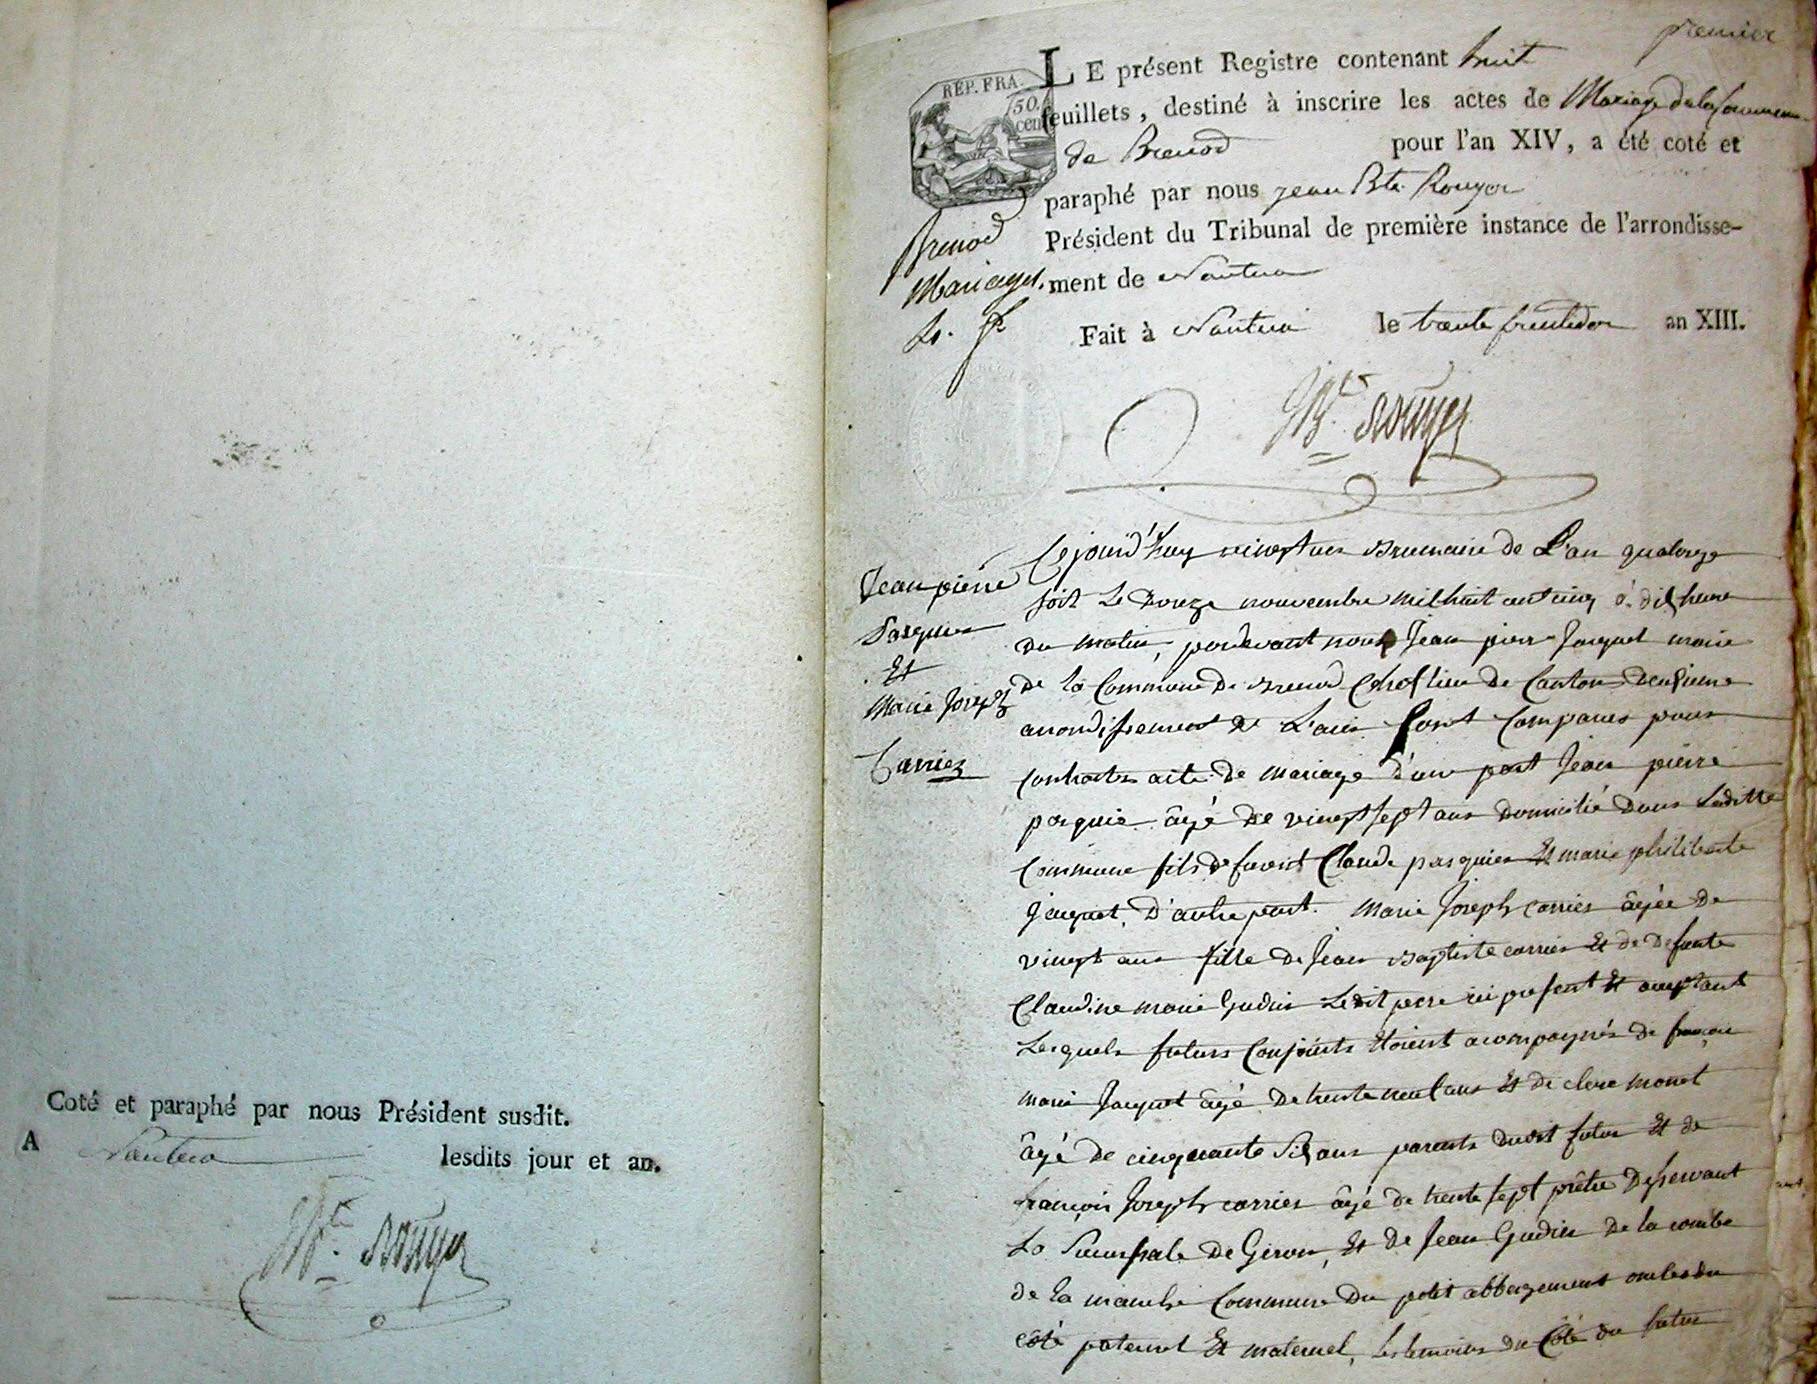 Coté et paraphé par nous Président susdit.
A Nantua lesdits jour et an.
JBte Rouyer
premier
REP. FRA.
50.
cen
LE présent Registre contenant huit
feuillets, destiné à inscrire les actes de Mariage de la Commune
de Brenod pour l'an XIV, a été coté et
paraphé par nous jean Bte Rouyer
Président du Tribunal de première instance de l'arrondisse-
ment de Nantua
Fait à Nantua le trente fructidor an XIII.
Brenod
Mariages.
JBte Rouyer
Jean pierre
Pasquier
Et
Marie Joseph
Carrier
Cejourd'huy vingt un Brumaire de L'an quatorze
soit Le Douze nouvembre mil huit cent cinq à dix heure
du matin, pardevant nous Jean pierre Jacquet maire
De la Commune De Brenod Chef lieu de Canton Deuxieme
arrondissement de L'ain Sont Comparus pour
Contracter acte de mariage d'une part Jean pierre
pasquier âgé de vingt sept ans Domicilié Dans Laditte
Commune fils de feu Claude pasquier Et marie philiberte
Jacquet, D'autre part. Marie Joseph carrier âgée de
vingt ans fille de Jean Baptiste carrier Et de Defunte
Claudine marie Gudin Ledit pere ici present Et aceptant
Lesquels futurs Conjoints étoient acompagnés de françois
marie Jacquet âgé De trente neuf ans Et de clere monet
âgé De cinquante Six ans parents dudit futur Et de
françois Joseph carrier âgé de trente sept prêtre Deservant
La Sucursale De Giron, Et de Jean Gudin De la combe
de la manche Commune Du petit abbergement oncles du
côté paternel Et maternel, Les temoins du Côté du futur